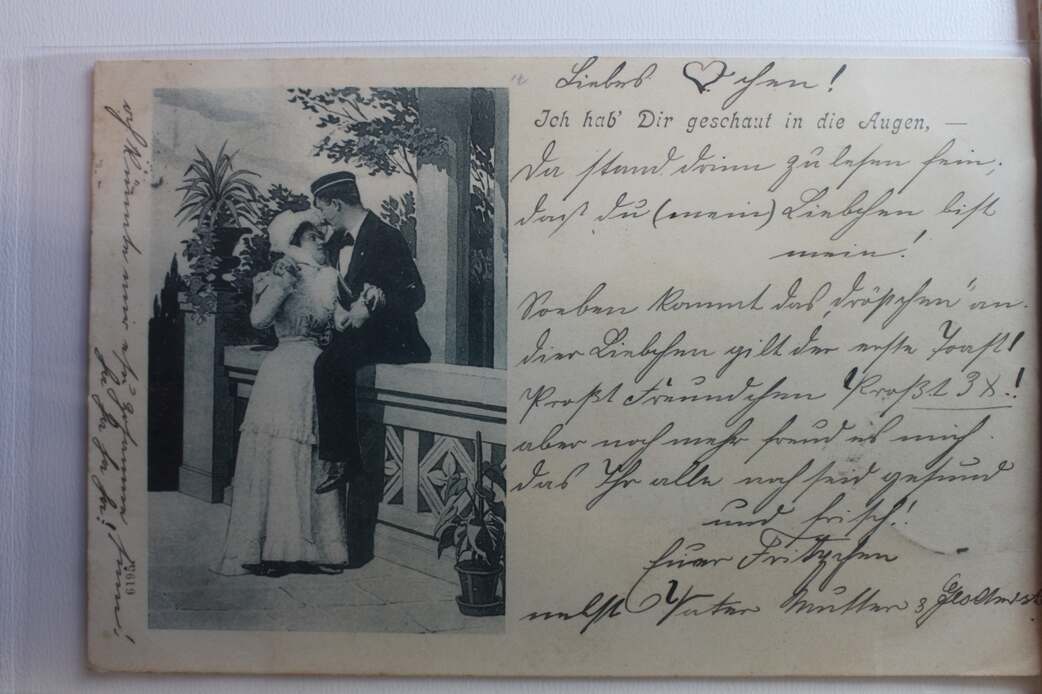 Liebes ♡chen!
Ich hab' Dir geschaut in die Augen, —
Da stand drinn zu lesen fein,
daß du (mein) Liebchen bist
mein!
Soeben kommt das „Tröpfchen" an.
dier Liebchen gilt der erste Toast!
Proßt Freundchen Proßt 3x!!
aber noch mehr freud es mich
das Ihr alle noch seid gesund
und frisch!
Euer Fritzchen
nebst Vater Mutter & Geschwist
mir
zusammen
ha ha ha ha!
6195